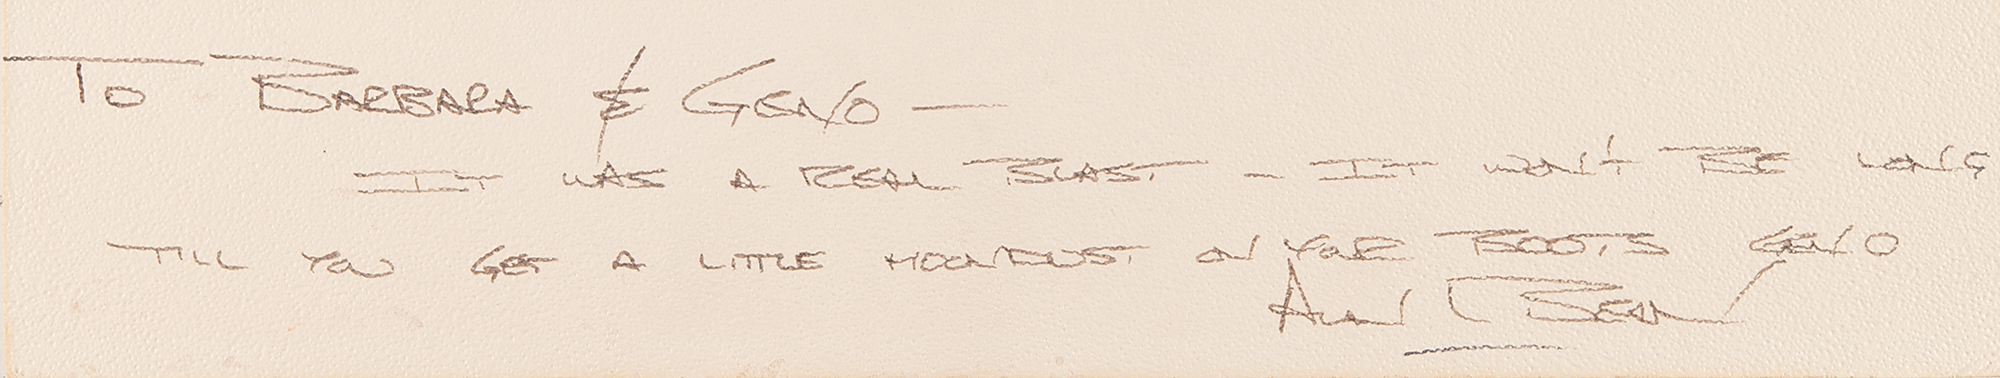 TO BARBARA & GENO —
IT WAS A REAL BLAST - IT WON'T BE LONG
TILL YOU GET A LITTLE MOONDUST ON YOUR BOOTS GENO
ALAN BEAN